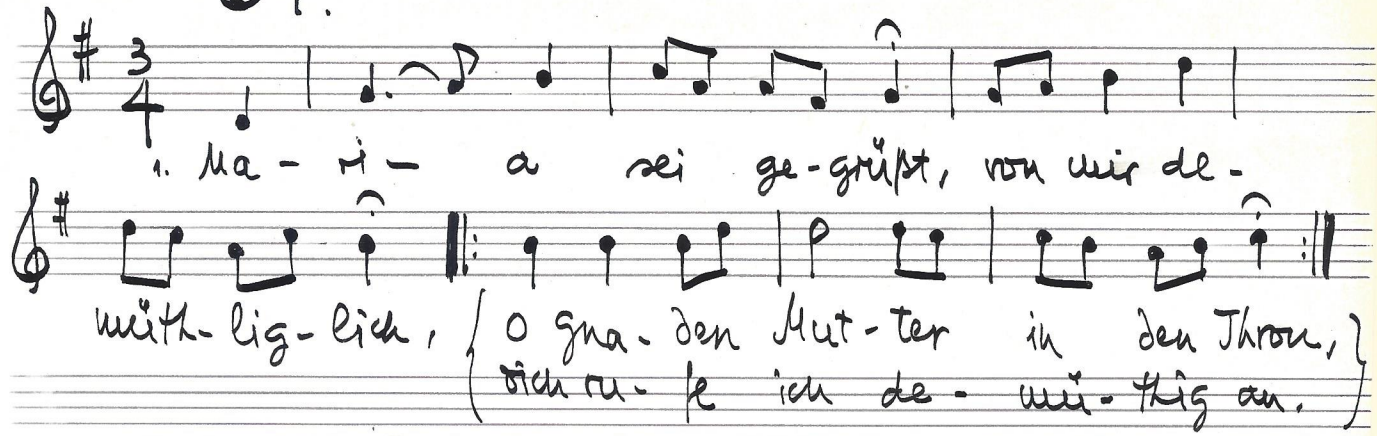 3
4
1. Ma - ri - a sei ge - grüßt, von mir de -
müth - lig - lich, { O Gna - den Mut - ter in den Thron, }
dich ru - fe ich de - mü - thig an.